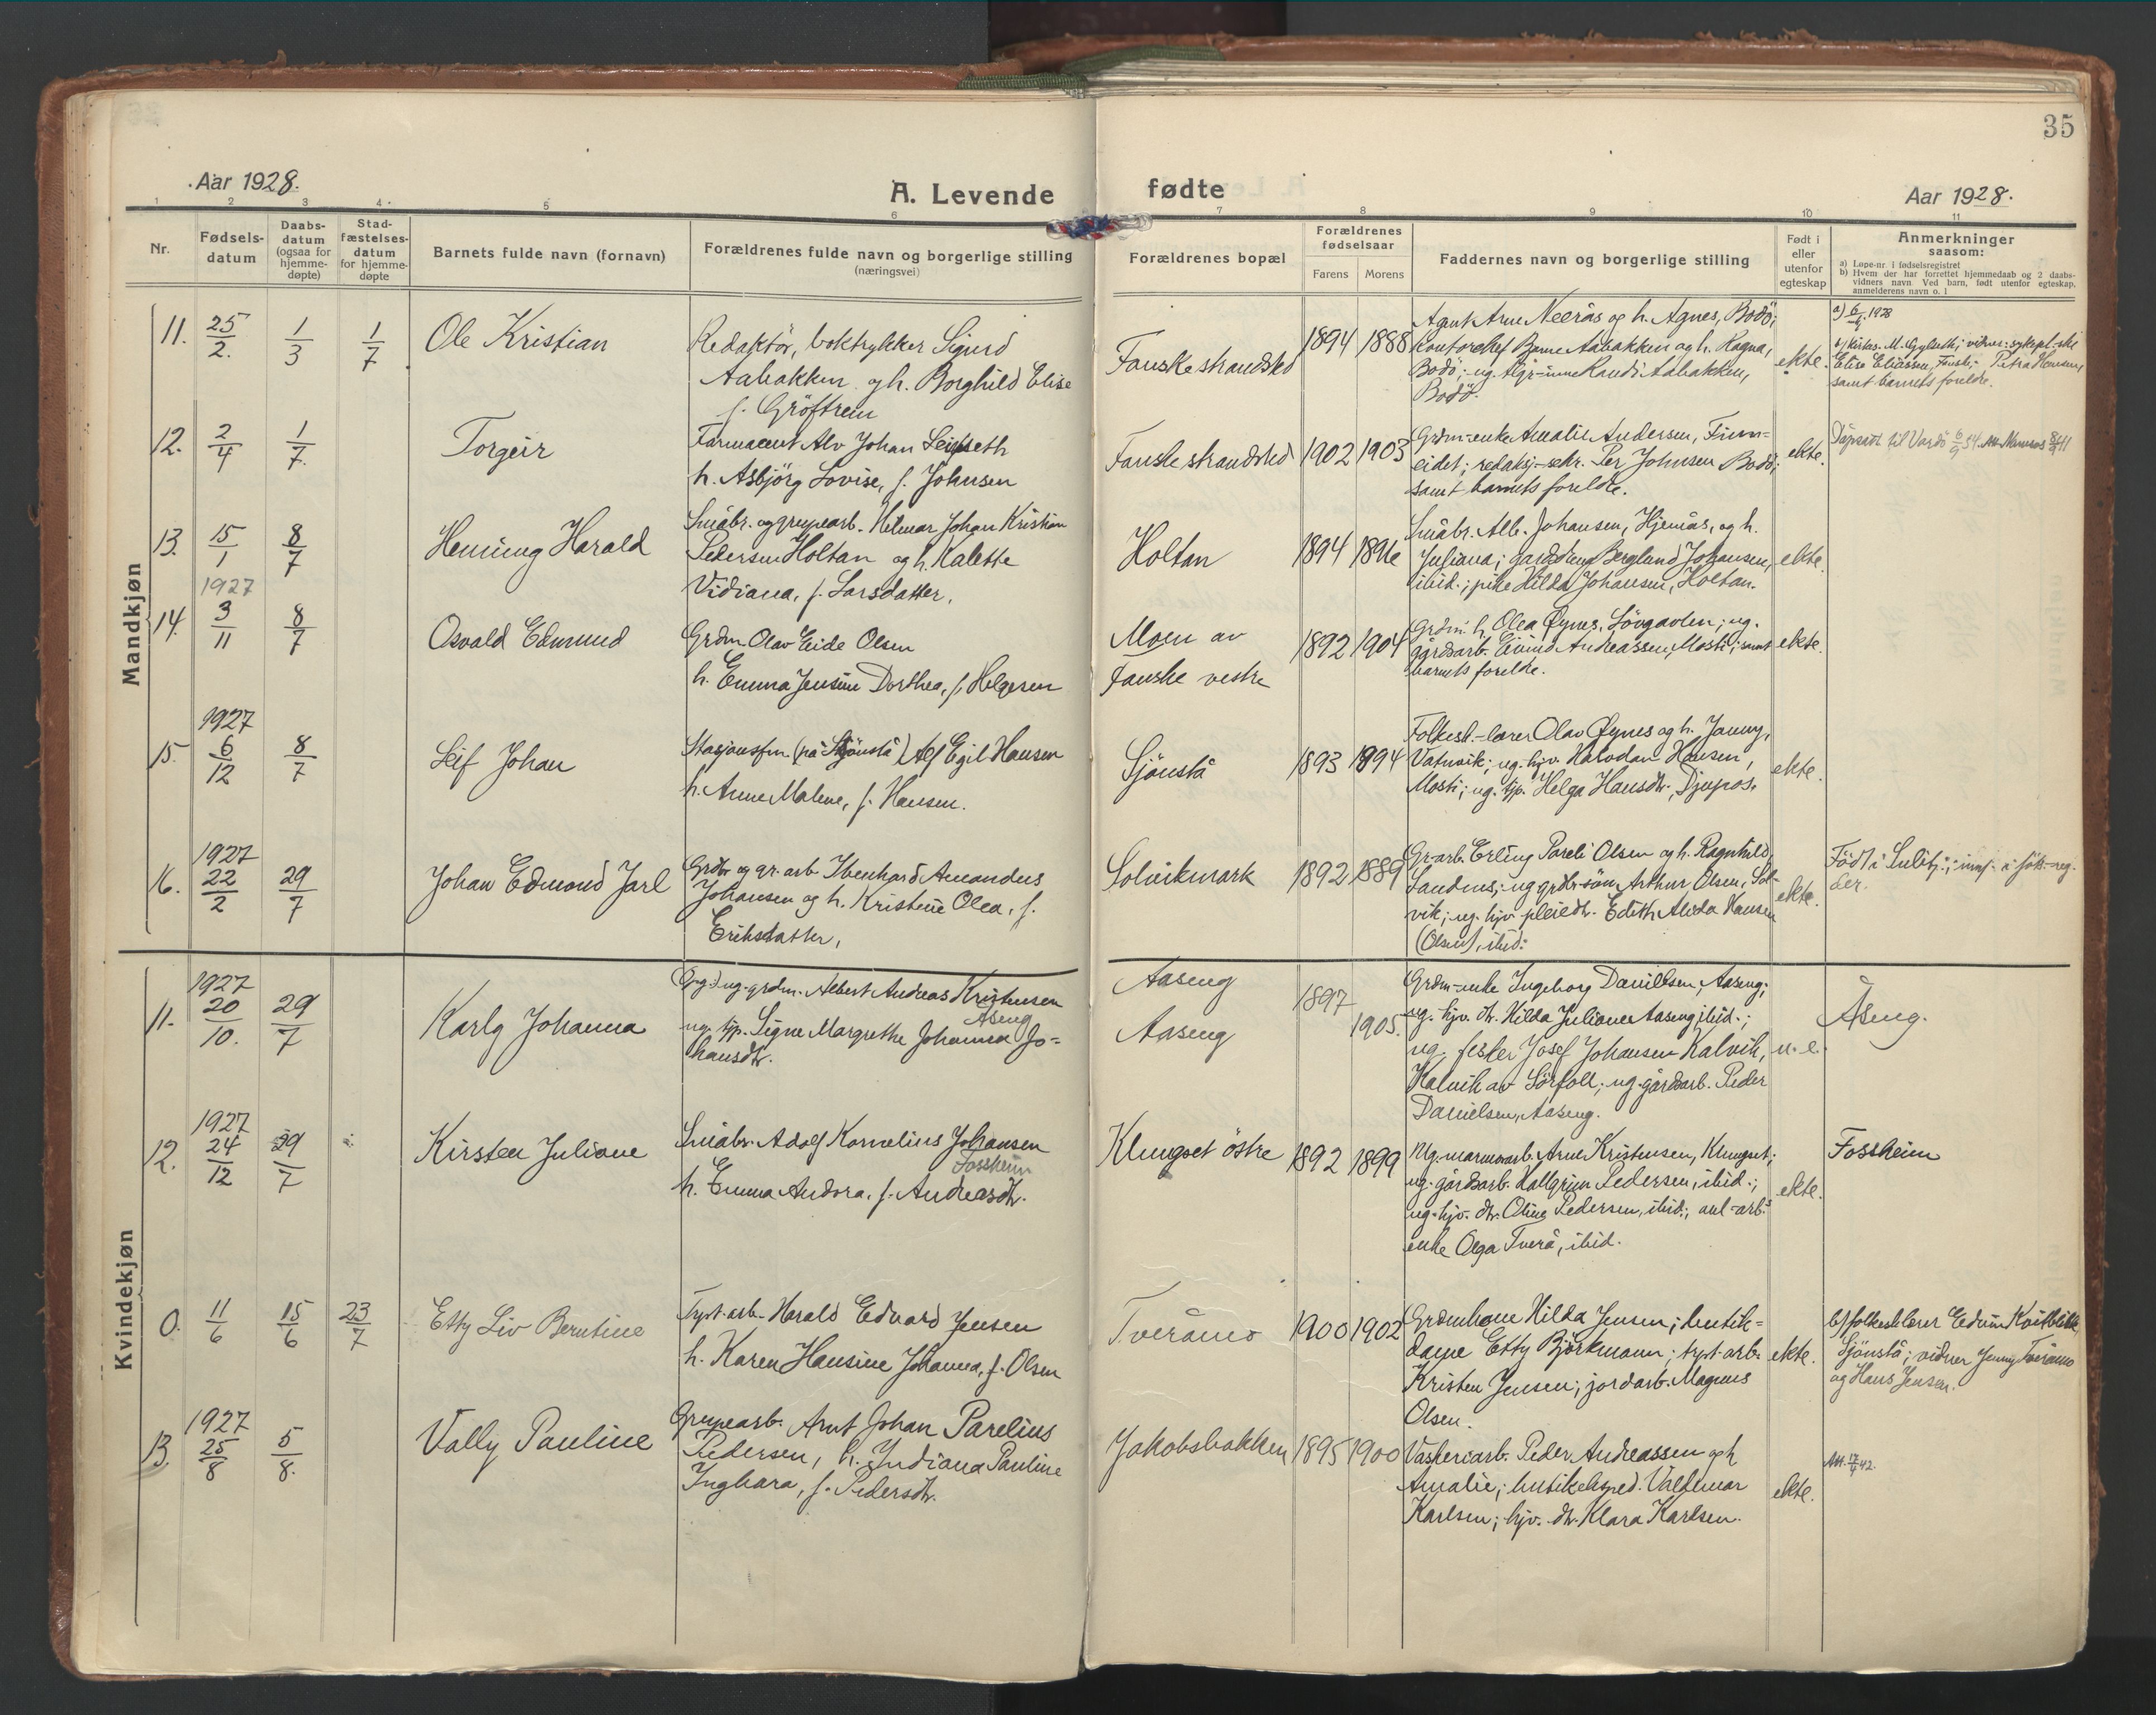 35
Aar 1928.
A. Levende
fødte
Aar 1928.
1 2 3 4 5 6 7 8 9 10 11
Nr.
Fødsels-
datum
Daabs-
datum
(ogsaa for
hjemme-
døpte)
Stad-
fæstelses-
datum
for hjemme-
døpte
Barnets fulde navn (fornavn)
Forældrenes fulde navn og borgerlige stilling
(næringsvei)
Forældrenes bopæl
Forældrenes
fødselsaar
Farens
Morens
Faddernes navn og borgerlige stilling
Født i
eller
utenfor
egteskap
Anmerkninger
saasom:
a) Løpe-nr. i fødselsregistret
b) Hvem der har forrettet hjemmedaab og 2 daabs-
vidners navn. Ved barn, født utenfor egteskap,
anmelderens navn o. l
Mandkjøn
11. 25/2. 1/3 1/7
Ole Kristian
Redaktör, boktrykker Sigurd
Aabakken og h. Borghild Elise
f. Gröftrem
Fauske strandsted
1894 1888
Agent Arne Neerås og h. Agnes, Bodö;
kontorchef Bjarne Aabakken og h. Ragna,
Bodö; ug. Aabakken,
Bodö.
ekte.
1928
Elise Eliassen, Fauske; Petra Hansen,
samt barnets foreldre.
12. 2/4 1/7.
Torgeir
Farmaceut Alv Johan Leipseth
h. Asbjörg Lovise, f. Johnsen
Fauske strandsted
1902 1903
Grdm-enke Amalie Andersen, Finn-
eidet; redaksj-sekr. Per Johnsen Bodö;
samt barnets foreldre.
ekte.
13. 15/1 8/7
Henning Harald
Småbr. og grupearb. Hilmar Johan Kristian
Pedersen Holtan og h. Kalette
Vidiana, f. Larsdatter.
Holtan
1894 1896
Småbr. Alb. Johansen, Hjemås, og h.
Juliana; Berglund Johansen,
ibid.; pike Hilda Johansen, Holtan.
ekte.
1927
14. 3/11 8/7
Osvald Edmund
Grdm. Olav Eide Olsen
h. Emma Jensine Dorthea, f. Helgesen
Moen av
Fauske vestre
1892 1904
Grdm. h. Olea Øynes, Lövgavlen; ug.
gårdsarb. Eivind Andreassen, Mosti; samt
barnets foreldre.
ekte.
1927
15. 6/12 8/7
Leif Johan
Stasjonsfm. (på Sjönstå) Alf Egil Hansen
h. Anne Malene, f. Hansen.
Sjönstå
1893 1894
Folkesk.-lærer Olav Øynes og h. Jenny,
Vatnvik; ug. hjv. Halvdan Hansen,
Mosti; ug. tjp. Helga Hansdtr., Djupos.
ekte.
1927
16. 22/2 29/7
Johan Edmond Jarl
Grdbr og gr. arb. Ibenhard Amandus
Johansen og h. Kristine Olea, f.
Eriksdatter,
Solvikmark
1892 1889
Gr-arb. Erling Pareli Olsen og h. Ragnhild,
Sandnes; ug grdbr-sön Arthur Olsen, Sol-
vik; ug. hjv pleiedtr. Edith Alida Hansen
(Olsen), ibid.
ekte.
Född i Sulitj.; innf. i föds-reg.
der.
Kvindekjøn
1927
11. 20/10. 29/7
Karly Johanna
ug. grdm. Albert Andreas Kristensen
Aseng
ug. tjp. Signe Margrethe Johanna Jo-
hansdtr.
Aaseng
Aaseng
1897
1905.
Grdm-enke Ingeborg Danielsen, Aaseng;
ug. hjv. dtr. Hilda Juliane Aaseng ibid.;
ug. fisker Josef Johansen Kalvik,
Kalvik av Sörfoll; ug. gårdsarb. Peder
Danielsen, Aaseng.
u. e.
Åseng.
1927
12. 24/12 29/7
Kirsten Juliane
Småbr. Adolf Kornelius Johansen
Fossheim
h. Emma Andora, f. Andreasdtr.
Klungset östre
1892 1899
Ug. marmorarb. Arne Kristensen, Klungset;
ug. gårdsarb. Hallgrim Pedersen, ibid.;
ug. hjv. dtr. Oline Pedersen, ibid.; anl-arb.s
enke Olga Tverå, ibid.
ekte.
Fossheim
0. 11/6 15/6 23/7
Etty Liv Berntine
Typt-arb. Harald Edvard Jensen
h. Karen Hansine Johanna, f. Olsen
Tveråmo
1900 1902
Hilda Jensen; butik-
dame Etty Björkmann; typt-arb.
Kristen Jensen; jordarb. Magnus
Olsen.
ekte.
b) folkesk.lærer Edvin Kvitblik
Sjönstå; vidner Jenny Tveråmo
og Hans Jensen.
1927
13. 25/8 5/8.
Vally Pauline
Grupearb. Arnt Johan Parelius
Pedersen, h. Indiana Pauline
Ingbara, f. Pedersdtr.
Jakobsbakken
1895 1900
Vaskeriarb. Peder Andreassen og h
Amalie; butikeksped. Valdemar
Karlsen; hjv. dtr. Klara Karlsen.
ekte.